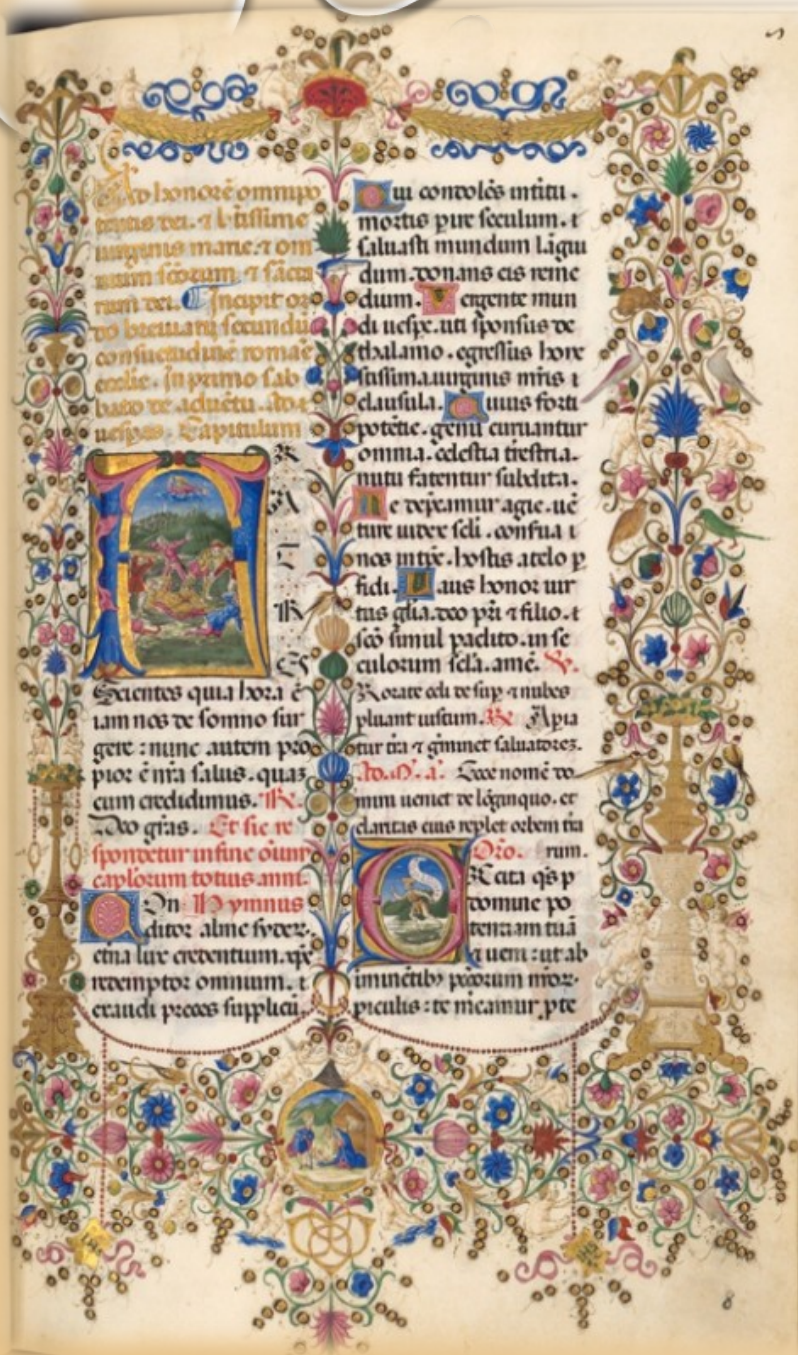 Ad honorē omnipo
tentis dei. ⁊ btissime
uirginis marie. ⁊ om
nium scōrum ⁊ sācta
rum dei. Incipit or
do breuiarii secundū
consuetudinē romāe
ecclīe. In primo sab
bato de aduētu. Ad
uesꝑas. Capitulum
FRA
T
R
ES
Scientes quia hora ē
iam nos de somno sur
gere : nunc autem pro
pior ē nr̄a salus. quaꝫ
cum credidimus. ℟.
Deo gr̄as. Et sic re
spondetur in fine oium
capl'orum totius anni.
On Hymnus
ditor alme syder.
etna lux credentium. xp̄e
redemptor omnium. i
exaudi preces supplicū.
Qui condolēs int̄itu.
mortis ꝑire seculum. i
saluasti mundum lāgui
dum. donans eis reme
dium. Vergente mun
di uesꝑe. uti sponsus de
thalamo. egressus hone
stissima. uirginis mr̄is i
clausula. Cuius forti
potētie. genu curuantur
omnia. celestia trestria.
nutu fatentur subdita.
Te dep̄camur agie. uē
ture iudex scl̄i. conserua i
nos in tp̄e. hostis a telo ꝑ
fidi. Laus honor uir
tus glīa. deo pr̄i ⁊ filio. i
scō simul paclito. in se
culorum scl̄a. amē. ℣.
Rorate celi desuꝑ ⁊ nubes
pluant iustum. ℟. Aꝑia
tur tr̄a ⁊ gminet saluatoreꝫ.
Ad. M. a. Ecce nomē do
mini ueniet de lōginquo. et
claritas eius replet orbem tr̄a
Oro. rum.
Excita q̄s p
domine po
tentiam tuā
⁊ ueni : ut ab
iminētibꝫ pccōrum nr̄or.
piculis : te mēamur ꝑ te
8